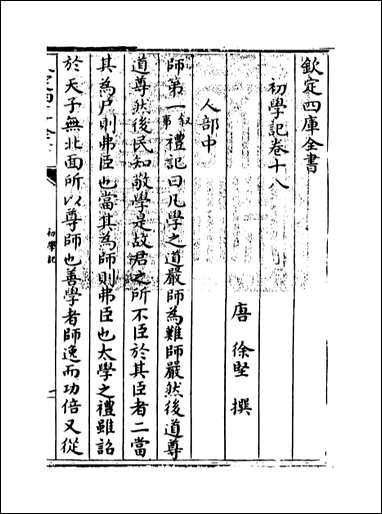 欽定四庫全書
初學記卷十八
唐 徐堅 撰
人部中
師第一叙事禮記曰凡學之道嚴師為難師嚴然後道尊
道尊然後民知敬學是故君之所不臣於其臣者二當
其為尸則弗臣也當其為師則弗臣也太學之禮雖詔
於天子無北面所以尊師也善學者師逸而功倍又從
初學記